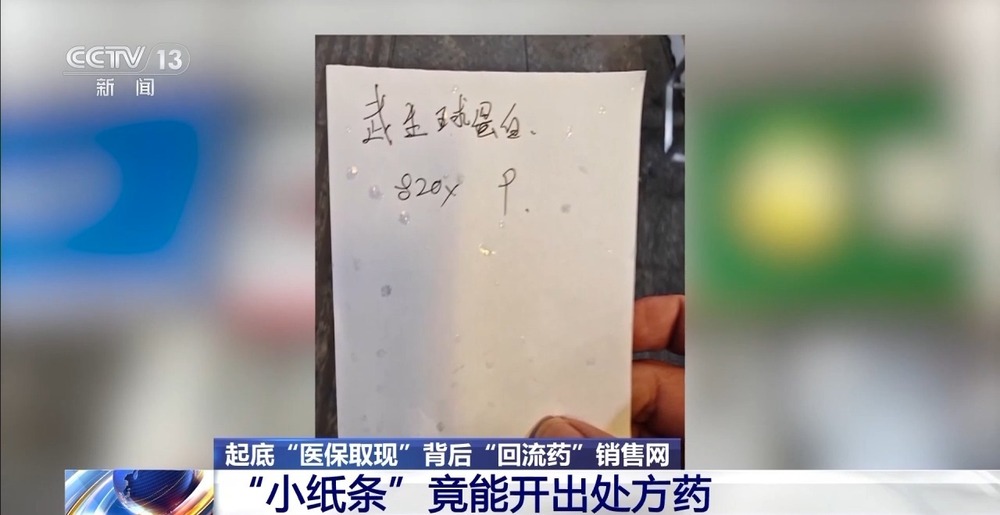 CCTV 13
新闻
武生球蛋白.
820x P.
起底“医保取现”背后“回流药”销售网
“小纸条”竟能开出处方药